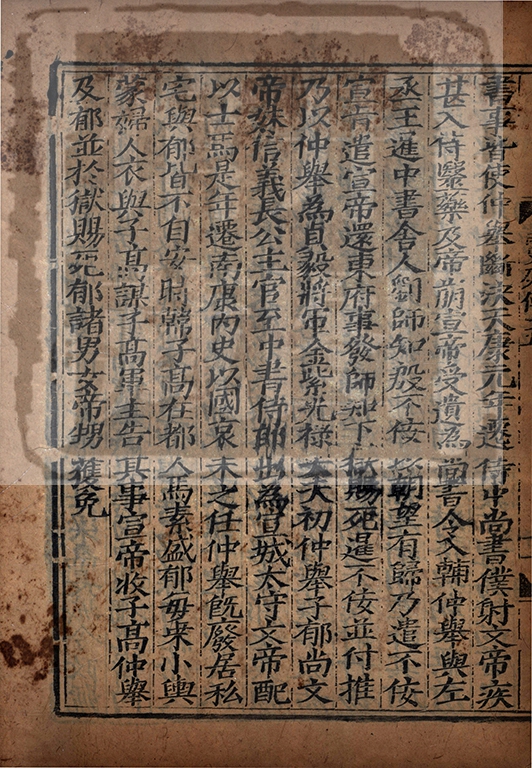 書事皆使仲舉斷決天康元年遷侍中尚書僕射文帝疾
甚入侍醫藥及帝崩宣帝受遺為尚書令入輔仲舉與左
丞王暹中書舍人劉師知殷不佞以朝望有歸乃遣不佞
宣旨遣宣帝還東府事發師知下獄賜死暹不佞並付推
乃以仲舉為貞毅將軍金紫光祿大夫初仲舉子郁尚文
帝妹信義長公主官至中書侍郎出為宣城太守文帝配
以士馬是年遷南康內史以國哀未之任仲舉既廢居私
宅與郁皆不自安時韓子高在都人馬素盛郁每乘小輿
蒙婦人衣與子高謀子高軍主告其事宣帝收子高仲舉
及郁並於獄賜死郁諸男女帝甥獲免